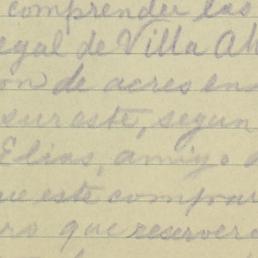 comprender las
egal de Villa Ah
on de acres en
sureste, segun
Elias, amigo d
ue este comprar
ro que reserver